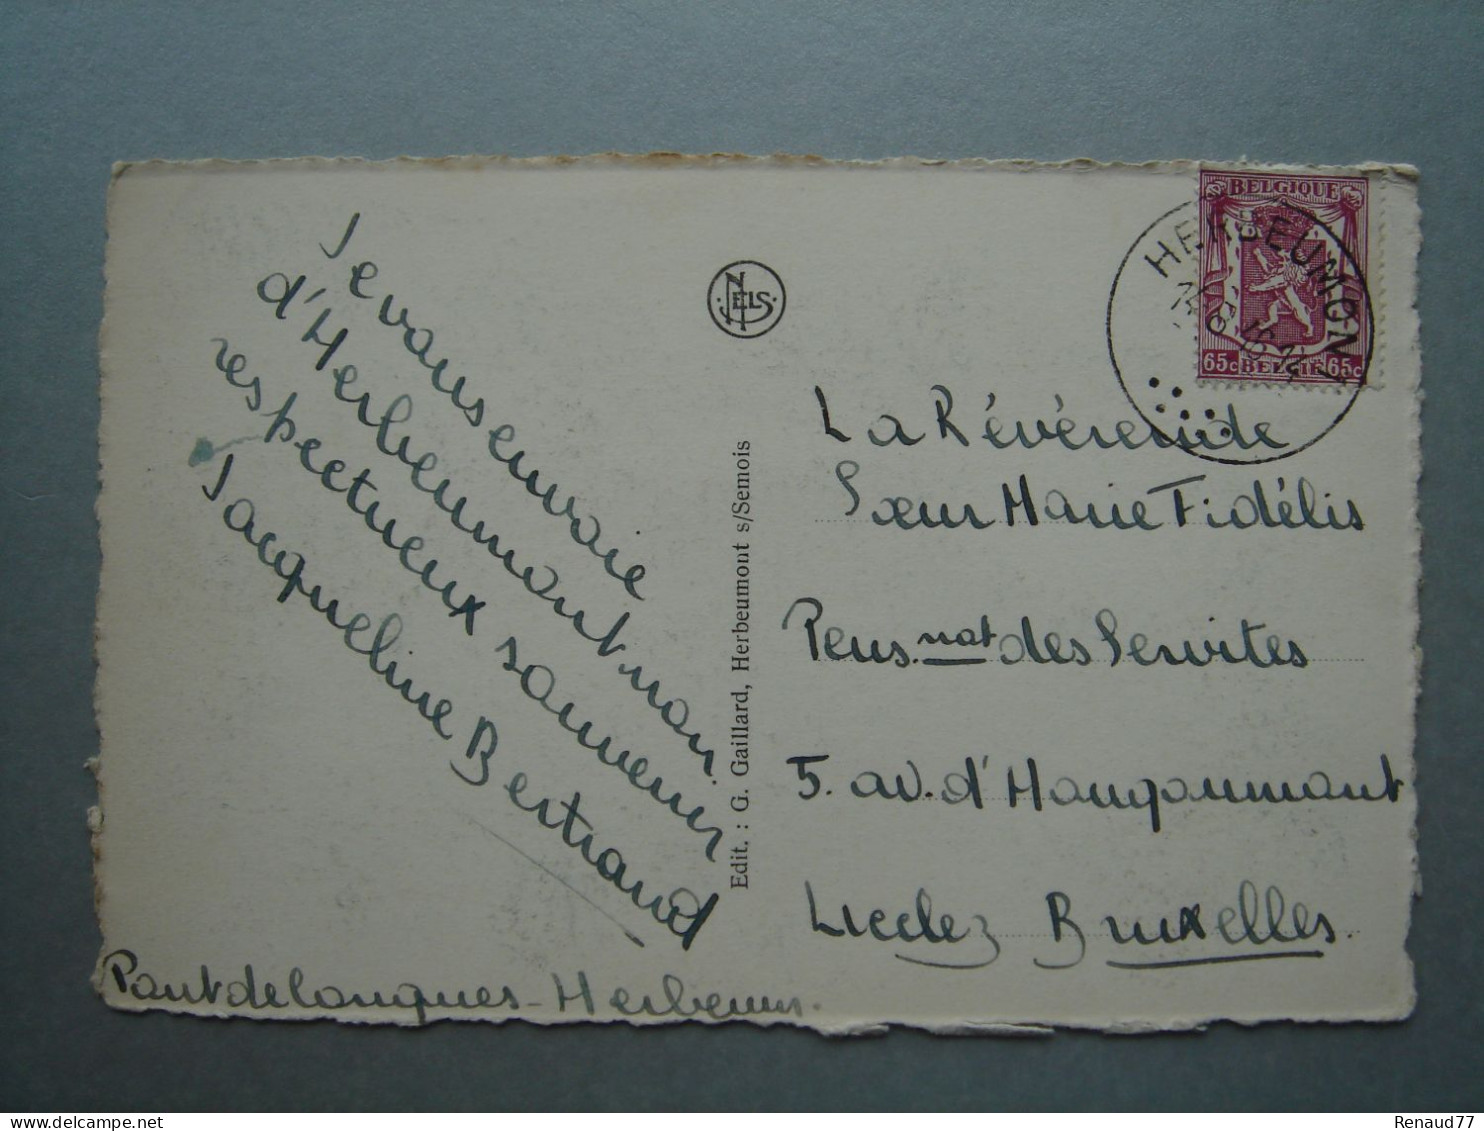 Je vous envoie
d'Herbeumont mon
respectueux souvenir
Jacqueline Bertrand
Pont de Longues - Herbeum.
NELS
Edit. : G. Gaillard, Herbeumont s/Semois
BELGIQUE
65c BELGIE 65c
HERBEUMONT
La Révérende
Sœur Marie Fidélis
Pens. nat des Servites
5. av. d'Hougoumont
Ucclez Bruxelles.
Renaud77